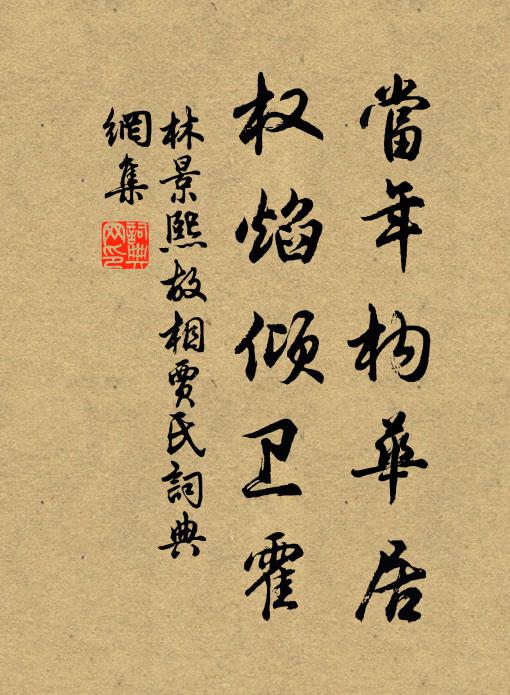 當年构華居
权焰倾卫霍
林景熙故相贾氏詞典
網集
詞典
网印